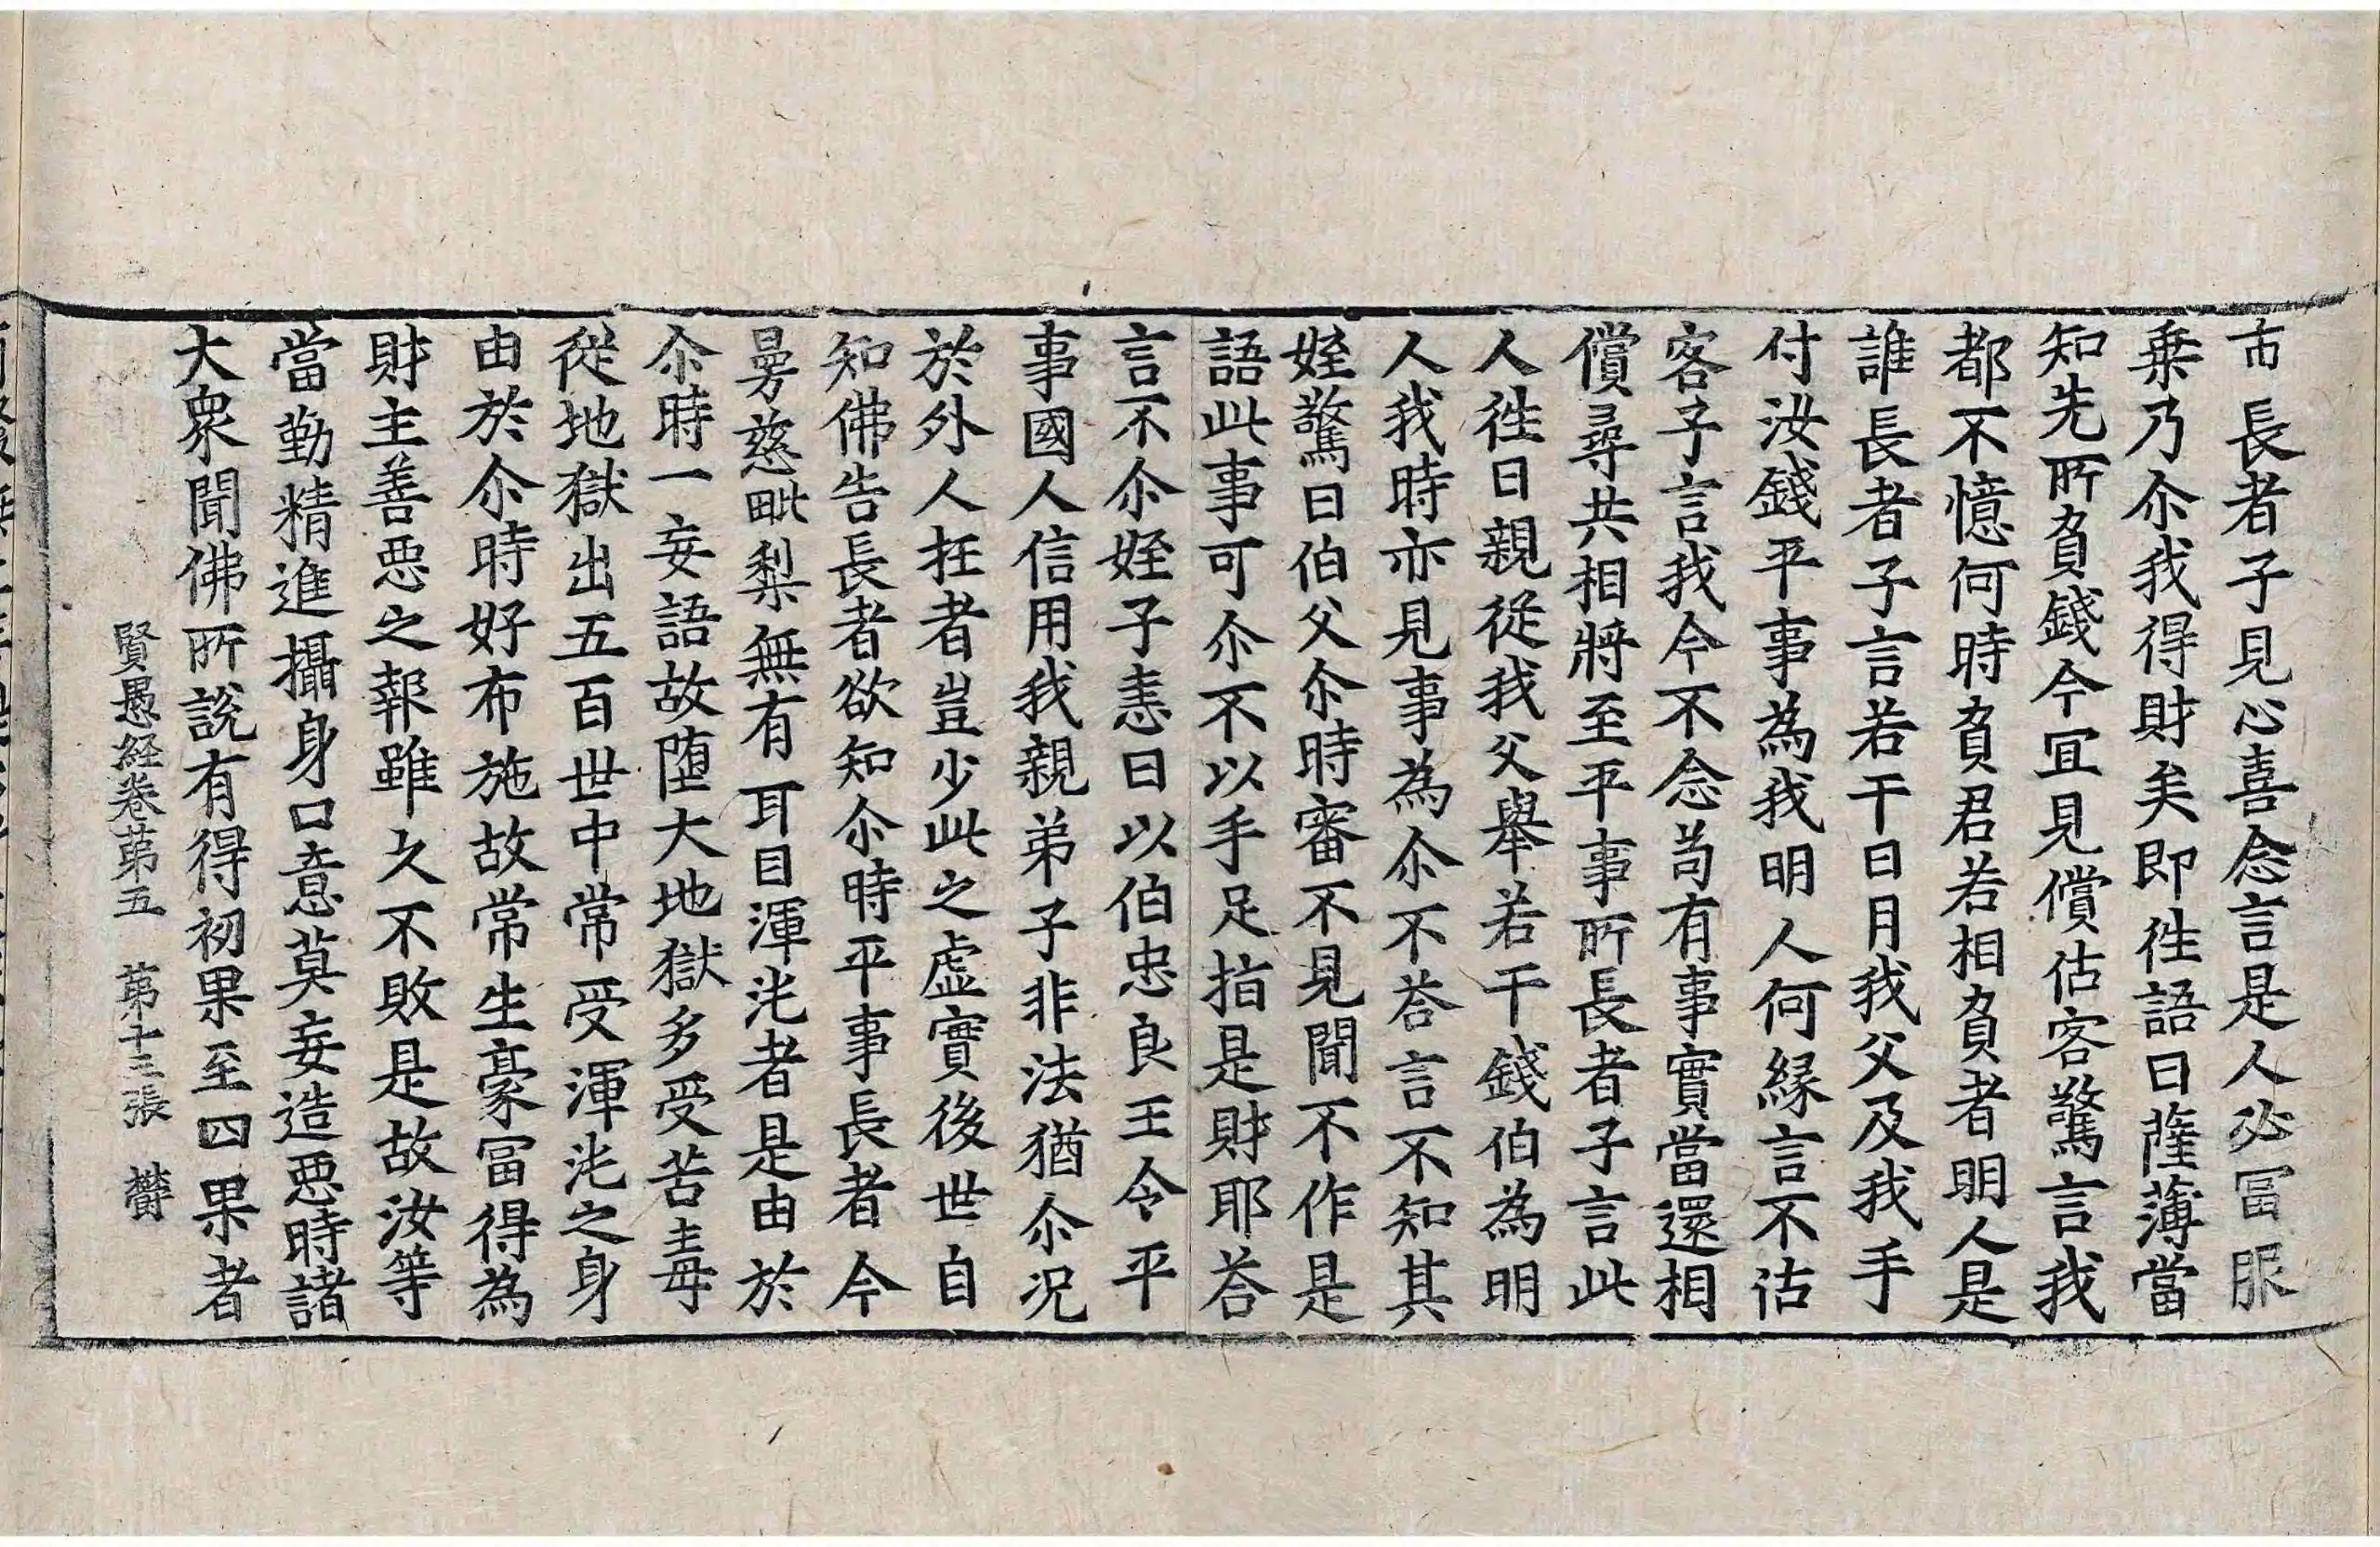 市長者子見心喜念言是人必冨服
乗乃尒我得財矣即徃語曰薩薄當
知先所負錢今冝見償估客驚言我
都不憶何時負君若相負者明人是
誰長者子言若干日月我父及我手
付汝錢平事為我明人何緣言不估
客子言我今不念苟有事實當還相
償尋共相將至平事所長者子言此
人徃日親從我父舉若干錢伯為明
人我時亦見事為尒不荅言不知其
姪驚曰伯父尒時審不見聞不作是
語此事可尒不以手足指是財耶荅
言不尒姪子恚曰以伯忠良王令平
事國人信用我親弟子非法猶尒况
於外人抂者豈少此之虛實後世自
知佛告長者欲知尒時平事長者今
曼慈毗梨無有耳目渾沌者是由於
尒時一妄語故墮大地獄多受苦毒
從地獄出五百世中常受渾沌之身
由於尒時好布施故常生豪冨得為
財主善惡之報雖久不敗是故汝等
當勤精進攝身口意莫妄造惡時諸
大衆聞佛所說有得初果至四果者
賢愚経卷苐五 苐十三張 欝